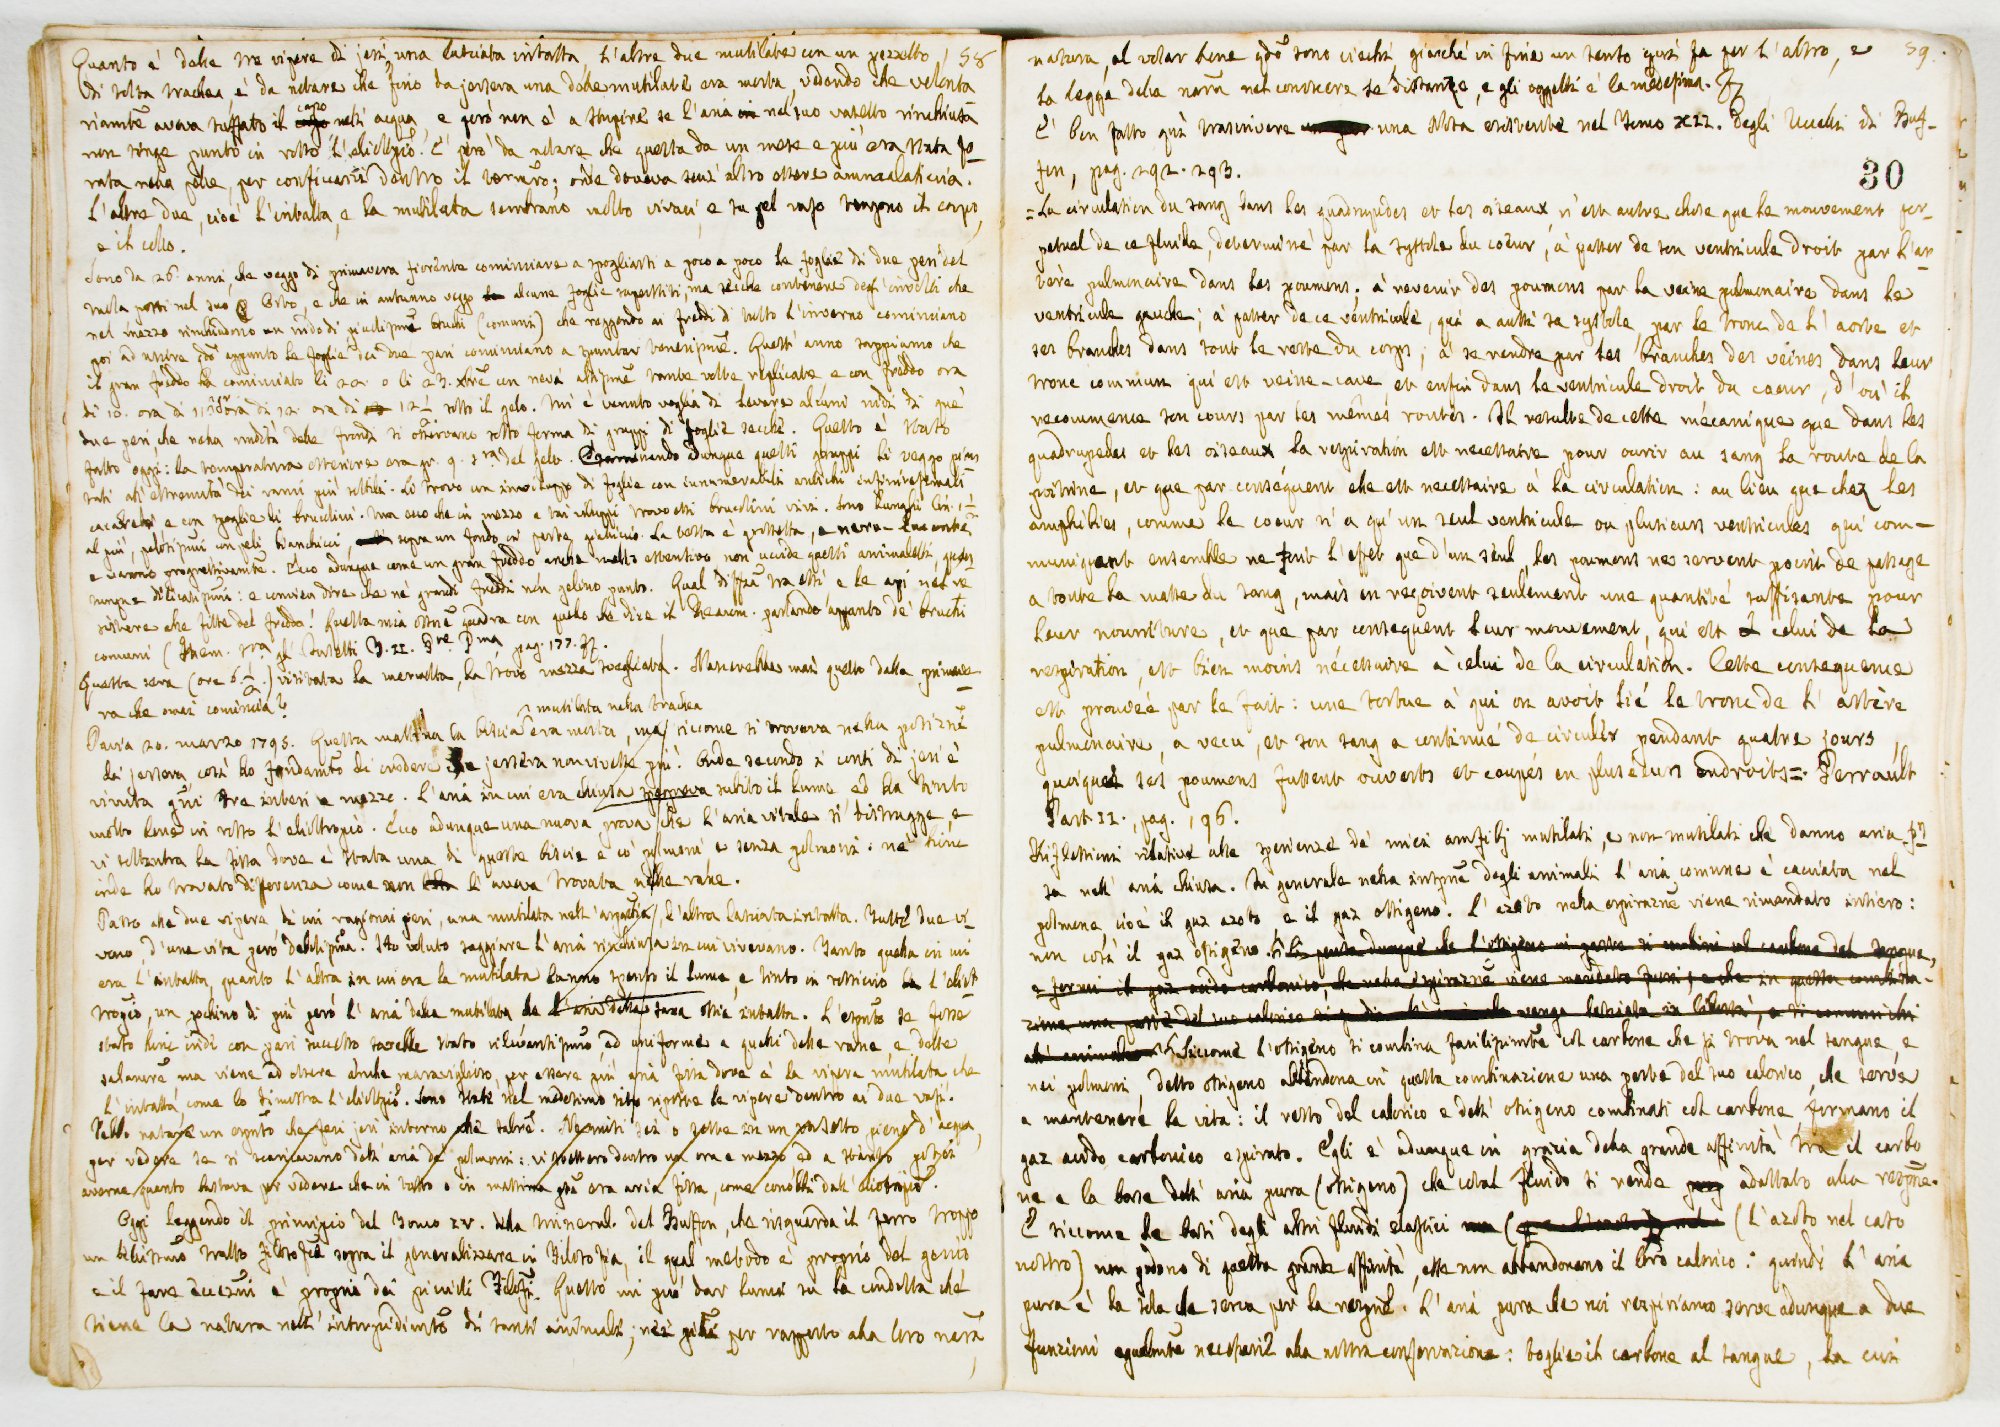 Quanto è delle tre vipere di jeri, una lasciata intatta, l'altre due mutilate con un pezzetto 58
di tolta trachea, è da notare che fino da jersera una delle mutilate era morta, vedendo che
aveva tuffato il capo nell'acqua, e però non è a stupire se l'aria nel suo vasetto rinchiusa
non tinge punto in rosso l'elioropio. E però da notare che questa da un mese e più era stata fo-
rata nella pelle, per conficcarvi dentro il termro; onde doveva senz'altro essere ammalaticcia.
L'altre due, cioè l'intatta, e la mutilata sembrano molto vivaci, e su pel vaso tengono il corpo,
e il collo.
Sono da 26 anni, che veggo di primavera fiorente cominciare a spogliarsi a poco a poco le foglie di due peri del
nel suo Orto, e che in autunno veggo alcune foglie superstiti, ma secche contenere degl'involti che
nel mezzo rinchiudono un nido di piccoliss.mi bruchi (comuni) che reggendo ai freddi di tutto l'inverno cominciano
poi ad uscire qdo appunto le foglie dei due peri cominciano a spuntar Quest'anno sappiamo che
il gran freddo ha cominciato li 22 o li 23 xbre con neve tante volte replicate e con freddo ora
di 10. ora di 11 ora di 12 ora di 12 1/2 sotto il gelo. Mi è venuto voglia di levare alcuni nidi di que'
due peri che nella nudità delle frondi si osservano sotto forma di gruppi di foglie secche. Questo è stato
fatto oggi: la temperatura esteriore era gr. 9. sra del gelo. Esaminando adunque questi gruppi li veggo
all'estremità dei rami più sottili. Li trovo un inviluppo di foglie con innumerabili antichi
e con spoglie di bruccolini. Ma ecco che in mezzo a tai viluppi trovo essi bruccolini vivi. Sono lunghi lin. 1 1/2
al più, pelosissimi con peli bianchicci, sopra un fondo in parte gialliccio. La testa è grossetta, e nera
e vanno progressivamte. Ecco adunque come un gran freddo anche molto intensivo non uccide questi animaletti, quan-
tunque dilicatissimi: e convien dire che ne' grandi freddi non gelino punto. Qual diffza tra essi e le api nel re-
sistere alle fitte del freddo! Questa mia ossne quadra con quello che dice il Reaum. parlando appunto de' bruchi
comuni (Mem. sra gl'Insetti T. II. Pre. Pma pag. 177. ff.
Questa sera (ore 6. 1/2) visitata la , la trovo mezza svegliata. Nascerebbe mai questo dalla primave-
ra che omai comincia?
mutilata nella trachea
Pavia 20. marzo 1795. Questa mattina la biscia era morta, ma siccome si trovava nella posizne
di jersera così ho fondamto di credere che jersera non vivesse più: Onde secondo i conti di jeri è
vivuta gni tre interi e mezzo. L'aria in cui era chiusa spegneva subito il lume ed ha tinto
molto bene in rosso l'eliotropio. Ecco adunque una nuova prova che l'aria vitale si distrugge, e
vi sottentra la fissa dove è stata una di queste biscie e co' polmoni e senza polmoni: nè hinc
inde ho trovato differenza come non l'aveva trovata nelle rane.
Passo alle due vipere, di cui ragionai jeri, una mutilata nell'aspartia, l'altra lasciata intatta. Tutte due vi-
vono, d'una vita però debolissima. Ho voluto saggiare l'aria rinchiusa in cui vivevano. Tanto quella in cui
era l'intatta, quanto l'altra in cui era la mutilata hanno spento il lume, e tinto in rossiccio l'eliot-
tropio, un pochino di più però l'aria della mutilata che l'aria della sana ossia intatta. L'esptо se fosse
stato hinc inde con pari successo sarebbe stato rilevantissimo, ad uniforme a quelli delle rane, e delle
salamre ma viene ad essere anche maraviglioso, per essere più aria fissa dove è la vipera mutilata che
l'intatta, come lo dimostra l'eliotpio. Sono state nel medesimo sito riposte le vipere dentro ai due vasi.
Debbo notare un esptо che feci jeri intorno alle salre. Ne misi sei o sette in un vasetto pieno d'acqua,
per vedere se si scaricavano dell'aria de' polmoni: vi stettero dentro un'ora e mezzo ed a stento potei
averne quanto bastava per vedere che in tutto o in massima pte era aria fissa, come conobbi dall'eliotropio.
Oggi leggendo il principio del Tomo IV. della Mineral. del Buffon, che risguarda il ferro troppo
un bellissimo tratto filosofico sopra il generalizzare in Filosofia, il qual metodo è proprio del genio
e il fare eccezni è proprio dei piccioli Filosofi. Questo mi può dar lume su la condotta che
tiene la natura nell'intorpidimento di tanti animali; nè più per rapporto alla loro nra
natura, al voler bene qdo sono ciechi, giacchè in fine un tanto quasi fa per l'altro, e 59.
la legge della narа nel conoscere le distanze, e gli oggetti è la medesima. ff
E' ben fatto quì trascrivere una Nota esistente nel Tomo XII. degli Uccelli di Buf-
fon, pag. 292. 293.
30
= La circulation du sang dans les quadrupedes et les oiseaux n'est autre chose que le mouvement per-
petuel de ce fluide, determiné par la systole du coeur, à passer de son ventricule droit par l'ar-
tère pulmonaire dans les poumons; à revenir des poumons par la veine pulmonaire dans le
ventricule gauche; à passer de ce ventricule, qui a aussi sa systole, par le tronc de l'aorte et
ses branches dans tout le reste du corps; à se rendre par les branches des veines dans leur
tronc commun qui est veine-cave et enfin dans le ventricule droit du coeur, d'où il
recommence son cours par les mêmes routes. Il resulte de cette mécanique que dans les
quadrupedes et les oiseaux la respiration est necessaire pour ouvrir au sang la route de la
poitrine, et que par conséquent elle est necessaire à la circulation: au lieu que chez les
amphibies, comme le coeur n'a qu'un seul ventricule ou plusieurs ventricules qui com-
muniquant ensemble ne font l'effet que d'un seul, les poumons ne servent point de passage
a toute la masse du sang, mais en reçoivent seulement une quantité suffisante pour
leur nourriture, et que par consequent leur mouvement, qui est celui de la
respiration, est bien moins nécessaire à celui de la circulation. Cette consequence
est prouvée par le fait: une tortue à qui on avoit lié le tronc de l'artère
pulmonaire, a vecu, et son sang a continué de circuler pendant quatre jours,
quoique ses poumons fussent ouverts et coupés en plusieurs endroits =. Perrault
Part. II., pag. 196.
Riflessioni relative alle sperienze de' miei amfibj mutilati, e non mutilati che danno aria fis-
sa nell'aria chiusa. In generale nella inspne degli animali l'aria comune è cacciata nel
polmone cioè il gaz azoto e il gaz ossigeno. L'azoto nella espirazne viene rimandato intiero:
non così il gaz ossigeno. Si pensa dunque che l'ossigeno in parte si unisca al carbone del sangue,
e formi il gaz acido carbonico, che nella espirazne viene mandato fuori, e che in questa combina-
zione una parte del suo calorico venga lasciata in libertà, e si comunichi
all'animale. Siccome l'ossigeno si combina facilissimte col carbone che si trova nel sangue, e
nei polmoni, detto ossigeno abbandona in questa combinazione una parte del suo calorico, che serve
a mantenere la vita: il resto del calorico e dell'ossigeno combinati col carbone formano il
gaz acido carbonico espirato. Egli è adunque in grazia della grande affinità tra il carbo
ne e la base dell'aria pura (ossigeno) che cotal fluido si rende adattato alla respne.
E siccome le basi degli altri fluidi elastici (l'azoto nel caso
nostro) non godono di questa grande affinità, esse non abbandonano il loro calorico: quindi l'aria
pura è la sola che serva per la respne. L'aria pura che noi respiriamo serve adunque a due
funzioni egualmte necessarie alla nostra conservazione: toglie il carbone al sangue, la cui